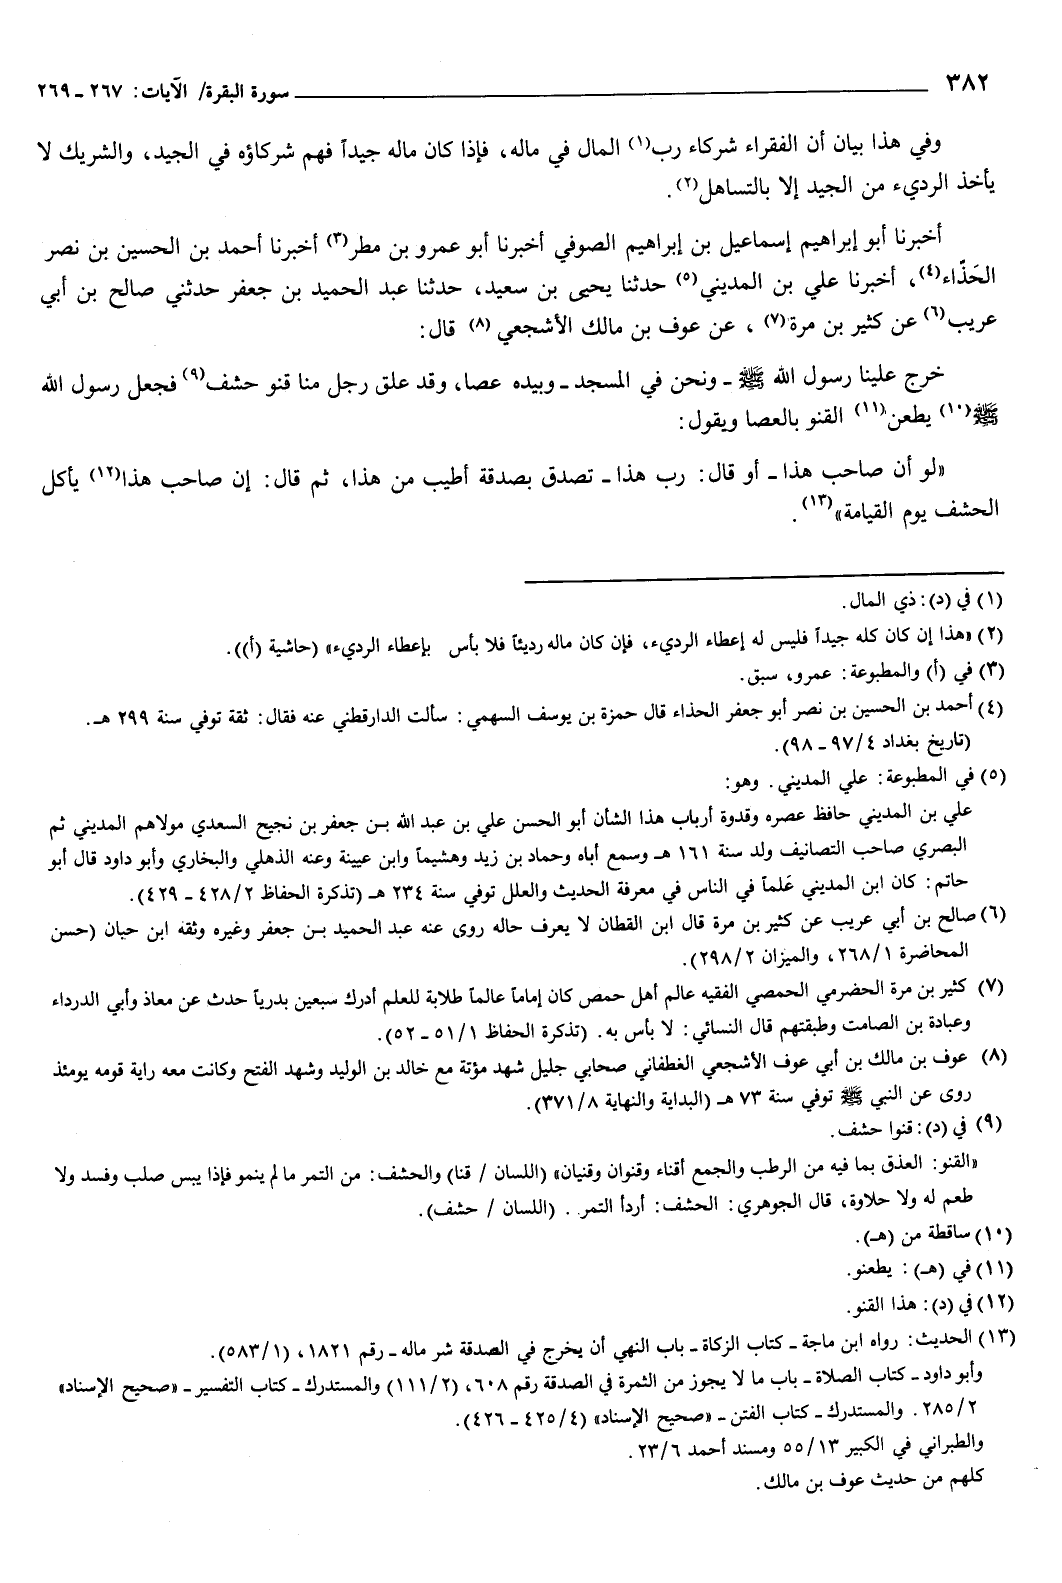 ٣٨٢ سورة البقرة/ الآيات: ٢٦٧ ـ ٢٦٩
وفي هذا بيان أن الفقراء شركاء رب(١) المال في ماله، فإذا كان ماله جيداً فهم شركاؤه في الجيد، والشريك لا
يأخذ الرديء من الجيد إلا بالتساهل(٢).
أخبرنا أبو إبراهيم إسماعيل بن إبراهيم الصوفي أخبرنا أبو عمرو بن مطر(٣) أخبرنا أحمد بن الحسين بن نصر
الحَذّاء(٤)، أخبرنا علي بن المديني(٥) حدثنا يحيى بن سعيد، حدثنا عبد الحميد بن جعفر حدثني صالح بن أبي
عريب(٦) عن كثير بن مرة(٧) ، عن عوف بن مالك الأشجعي (٨) قال:
خرج علينا رسول الله ﷺ ـ ونحن في المسجد ـ وبيده عصا، وقد علق رجل منا قنو حشف(٩) فجعل رسول الله
ﷺ(١٠) يطعن(١١) القنو بالعصا ويقول:
«لو أن صاحب هذا ـ أو قال: رب هذا ـ تصدق بصدقة أطيب من هذا، ثم قال: إن صاحب هذا(١٢) يأكل
الحشف يوم القيامة»(١٣).
(١) في (د): ذي المال.
(٢) «هذا إن كان كله جيداً فليس له إعطاء الرديء، فإن كان ماله رديئاً فلا بأس بإعطاء الرديء» (حاشية (أ)).
(٣) في (أ) والمطبوعة: عمرو، سبق.
(٤) أحمد بن الحسين بن نصر أبو جعفر الحذاء قال حمزة بن يوسف السهمي: سألت الدارقطني عنه فقال: ثقة توفي سنة ٢٩٩ هـ.
(تاريخ بغداد ٩٧/٤ ـ ٩٨).
(٥) في المطبوعة: علي المديني. وهو:
علي بن المديني حافظ عصره وقدوة أرباب هذا الشأن أبو الحسن علي بن عبد الله بـن جعفر بن نجيح السعدي مولاهم المديني ثم
البصري صاحب التصانيف ولد سنة ١٦١ هـ وسمع أباه وحماد بن زيد وهشيماً وابن عيينة وعنه الذهلي والبخاري وأبو داود قال أبو
حاتم: كان ابن المديني عَلماً في الناس في معرفة الحديث والعلل توفي سنة ٢٣٤ هـ (تذكرة الحفاظ ٤٢٨/٢ ـ ٤٢٩).
(٦) صالح بن أبي عريب عن كثير بن مرة قال ابن القطان لا يعرف حاله روى عنه عبد الحميد بـن جعفر وغيره وثقه ابن حبان (حسن
المحاضرة ٢٦٨/١، والميزان ٢٩٨/٢).
(٧) كثير بن مرة الحضرمي الحمصي الفقيه عالم أهل حمص كان إماماً عالماً طلابة للعلم أدرك سبعين بدرياً حدث عن معاذ وأبي الدرداء
وعبادة بن الصامت وطبقتهم قال النسائي: لا بأس به. (تذكرة الحفاظ ٥١/١ ـ ٥٢).
(٨) عوف بن مالك بن أبي عوف الأشجعي الغطفاني صحابي جليل شهد مؤتة مع خالد بن الوليد وشهد الفتح وكانت معه راية قومه يومئذ
روى عن النبي ﷺ توفي سنة ٧٣ هـ (البداية والنهاية ٣٧١/٨).
(٩) في (د): قنوا حشف.
«القنو: العذق بما فيه من الرطب والجمع أقناء وقنوان وقنيان» (اللسان / قنا) والحشف: من التمر ما لم ينمو فإذا يبس صلب وفسد ولا
طعم له ولا حلاوة، قال الجوهري: الحشف: أردأ التمر. . (اللسان / حشف).
(١٠) ساقطة من (هـ).
(١١) في (هـ) : يطعنو.
(١٢) في (د): هذا القنو.
(١٣) الحديث: رواه ابن ماجة ـ كتاب الزكاة ـ باب النهي أن يخرج في الصدقة شر ماله ـ رقم ١٨٢١، (٥٨٣/١).
وأبو داود ـ كتاب الصلاة ـ باب ما لا يجوز من الثمرة في الصدقة رقم ٦٠٨، (١١١/٢) والمستدرك ـ كتاب التفسير ـ «صحيح الإسناد»
٢٨٥/٢. والمستدرك ـ كتاب الفتن ـ «صحيح الإسناد» (٤٢٥/٤ ـ ٤٢٦).
والطبراني في الكبير ٥٥/١٣ ومسند أحمد ٢٣/٦.
كلهم من حديث عوف بن مالك.